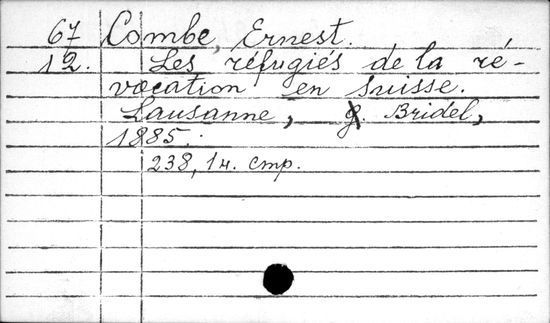 67 Combe, Ernest.
12. Les réfugiés de la ré-
vocation en Suisse.
Lausanne, G. Bridel,
1885.
238, 1 н. стр.